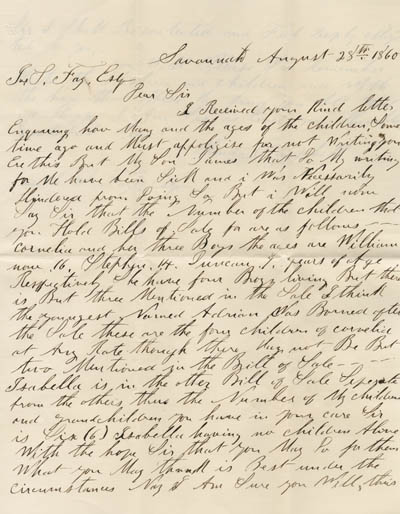 Savannah August 28th 1860
Jos. S. Fay, Esq
Dear Sir
I Received your Kind letter
Enquring how Many and the ages of the children Some
time ago and Must appoligise for not Writing you
Er this But My Son James that Do My writing
for Me have been Sick and i Was Necessarily
Hindered from Doing So But i Will now
Say Sir that the Number of the children that
you Hold Bills of Sale for are as follows
Cornelia and her three Boys the ages are William
now 16. Stephen. 14. Duncan. 9. years of age
Respectively She have four Boys living But there
is But three Mentioned in the Sale I think
the youngest Named Adrian Was Borned after
the Sale these are the four children of cornelia
at Any Rate though there May not Be But
two Mentioned in the Bill of Sale
Isabella is in the other Bill of Sale Seperate
from the others, thus the Number of My children
and grandchildren you have in your care Sir
is Six (6) Isabella having no children Alive
With the hope Sir that you May Do for them
What you May think is Best under the
circumstances Nay I Am Sure you Will, this